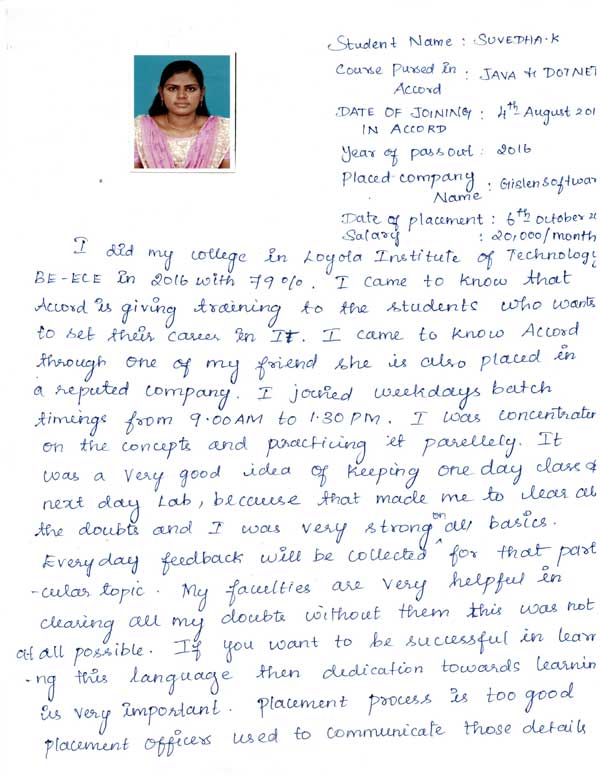 Student Name : SUVEDHA.K
Course Pursed in : JAVA & DOTNET
Accord
DATE OF JOINING : 4th August 201
IN ACCORD
Year of passout : 2016
Placed company
Name : Gislen Softwar
Date of placement : 6th October 2
Salary : 20,000/month
I did my college in Loyola Institute of Technology
BE-ECE in 2016 with 79%. I came to know that
Accord is giving training to the students who wants
to set their career in IT. I came to know Accord
through one of my friend she is also placed in
a reputed company. I joined weekdays batch
timings from 9.00AM to 1.30PM. I was concentrate
on the concepts and practicing it parellely. It
was a very good idea of keeping one day class &
next day Lab, because that made me to clear al
the doubts and I was very strong on all basics.
Everyday feedback will be collected for that part
-cular topic. My faculties are very helpful in
clearing all my doubts without them this was not
at all possible. If you want to be successful in learn
-ng this language then dedication towards learnin
is very important. Placement process is too good
placement officers used to communicate those details